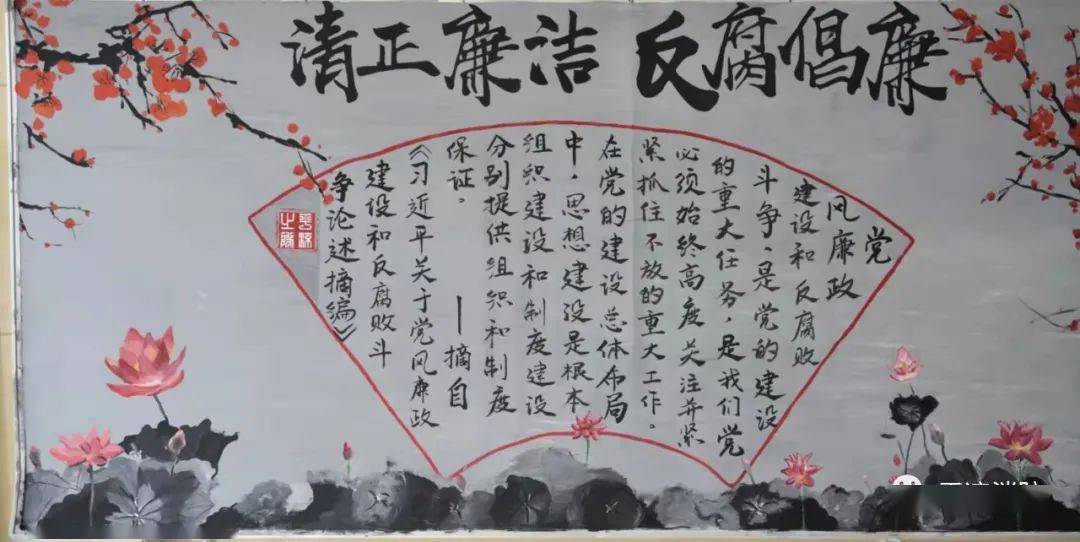 清正廉洁 反腐倡廉
党
风廉政
建设和反腐败
斗争、是党的建设
的重大任务,是我们党
必须始终高度关注并紧
紧抓住不放的重大工作。
在党的建设总体布局
中,思想建设是根本
组织建设和制度建设
分别提供组织和制度
保证。 ——摘自
《习近平关于党风廉政
建设和反腐败斗
争论述摘编》